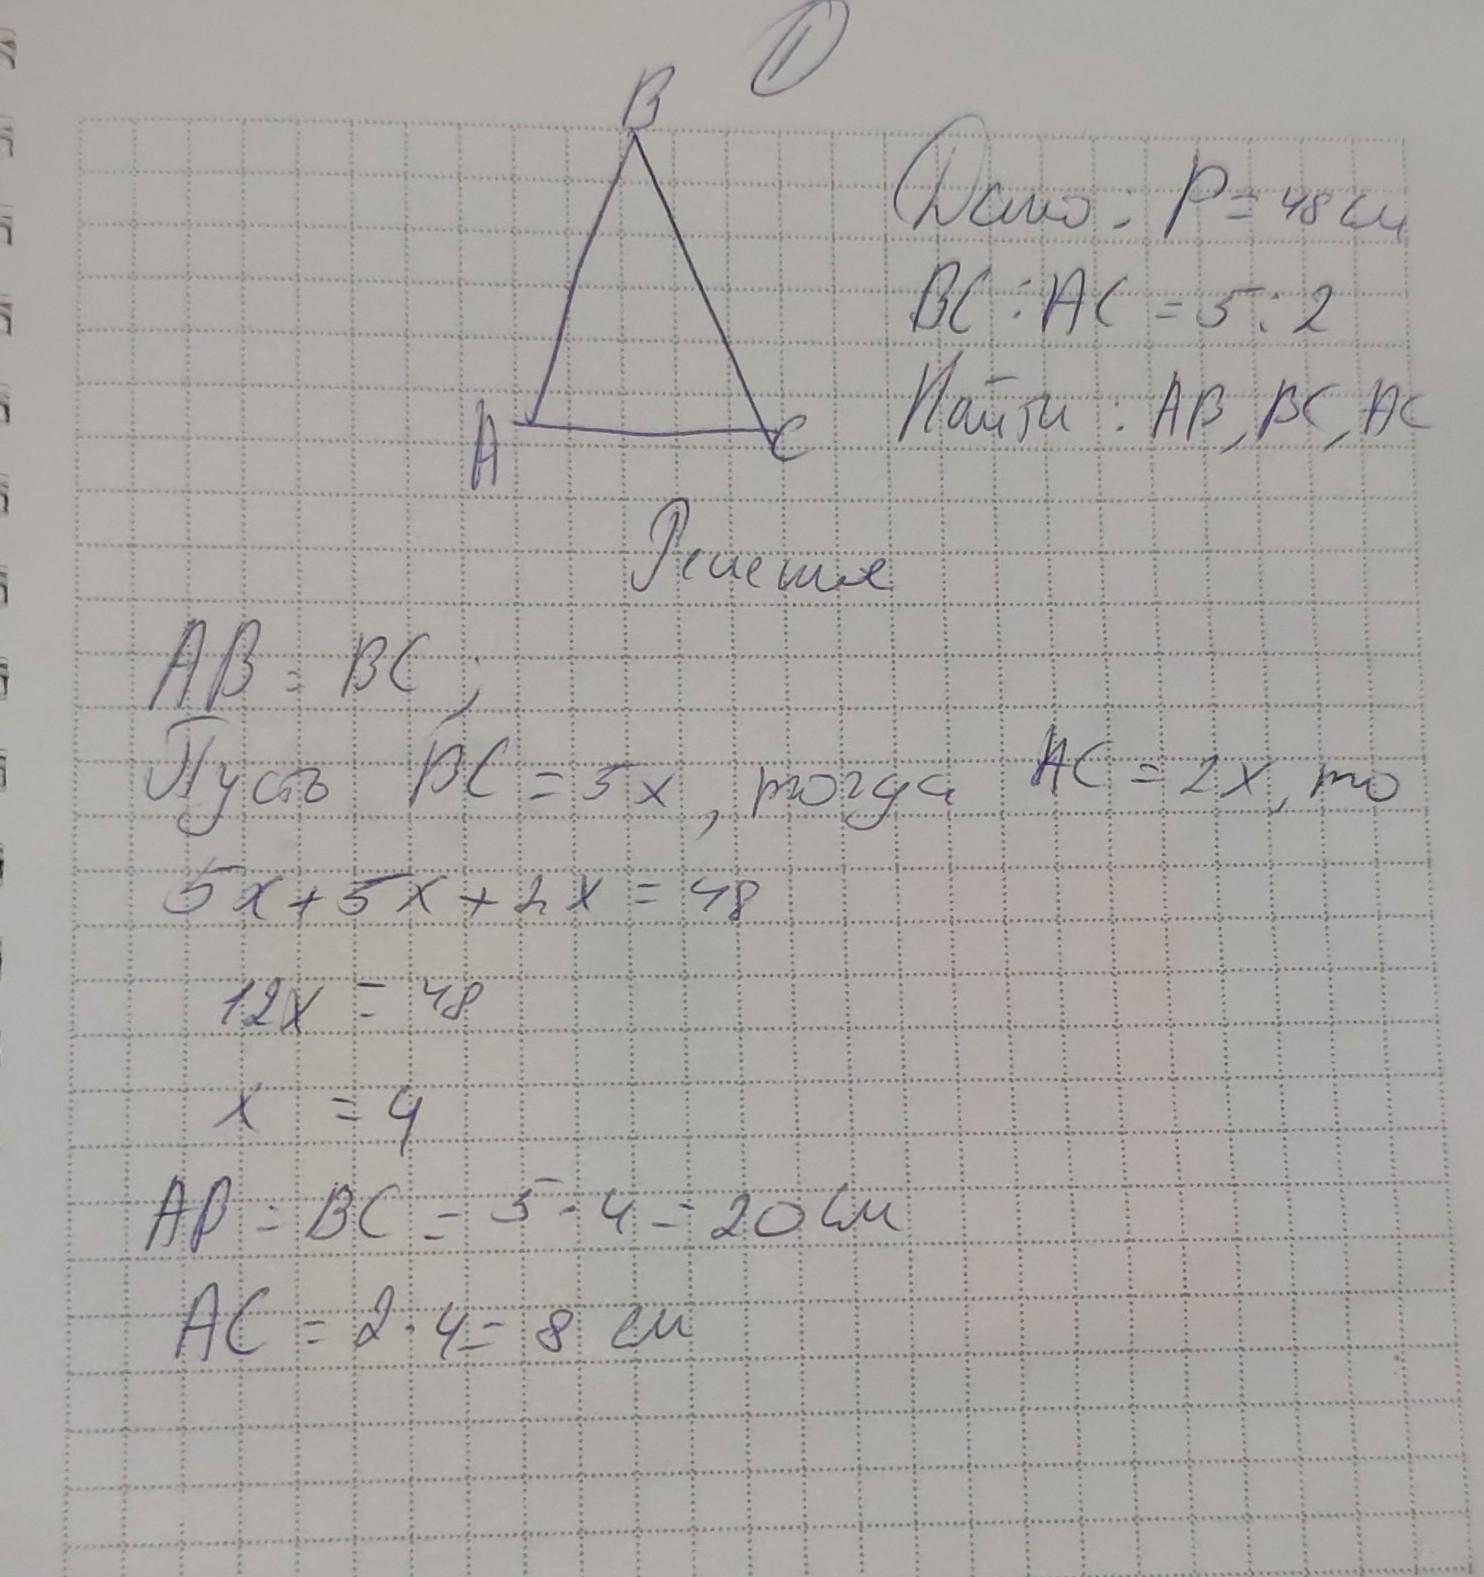 1
B
Дано: P = 48 см
BC : AC = 5 : 2
Найти: AB, BC, AC
A
C
Решение
AB = BC;
Пусть BC = 5x, тогда AC = 2x, то
5x + 5x + 2x = 48
12x = 48
x = 4
AB = BC = 5 · 4 = 20 см
AC = 2 · 4 = 8 см